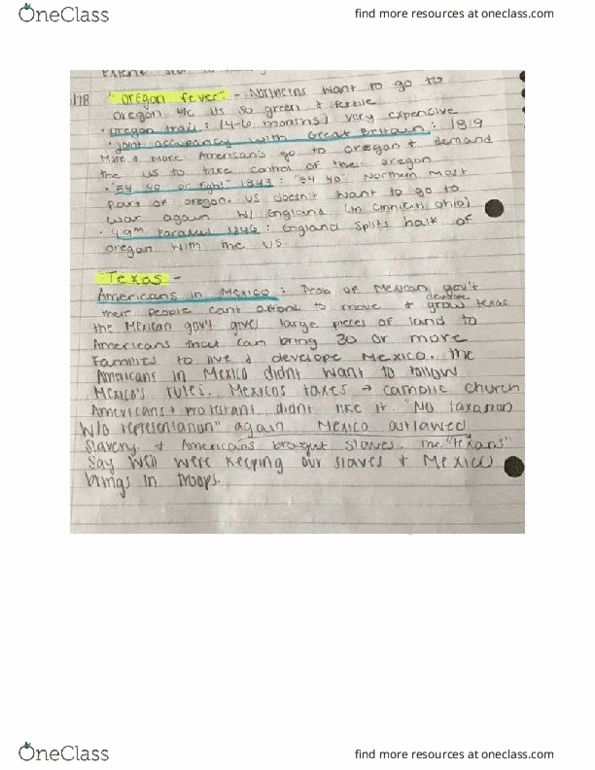 OneClass
find more resources at oneclass.com
/18 "Oregon fever" - Northerns want to go to
Oregon b/c its so green & fertile
• Oregon trail: (4-6 months) very expensive
• Joint occupancy with Great Britain: 1819
More & More American's go to Oregon & demand
the US to take control of the Oregon
• "54 40 or fight" 1843: "54 40" Northern most
part of Oregon. US doesn't want to go to
war again w/ England (in Cinncinati, Ohio)
• 49th Parallel 1846: England splits half of
Oregon with the US.
Texas -
Americans in Mexico: Prob of Mexican gov't
there people cant afford to move & develope grow Texas
the Mexican gov't gives large pieces of land to
Americans that can bring 30 or more
families to live & develope Mexico. The
Americans in Mexico didnt want to follow
Mexico's rules. Mexicos taxes → catholic church
Americans protestant didnt like it. "No taxation
w/o representation" again. Mexico outlawed
slavery & Americans brought slaves. The "Texans"
say well were keeping our slaves & Mexico
brings in troops.
OneClass
find more resources at oneclass.com